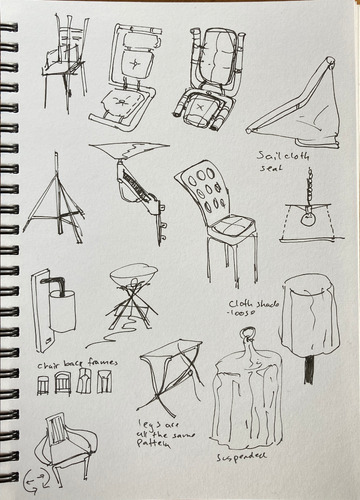 Sailcloth
seat
Cloth shade
- loose
chair back frames
legs are
all the same
pattern
Suspended